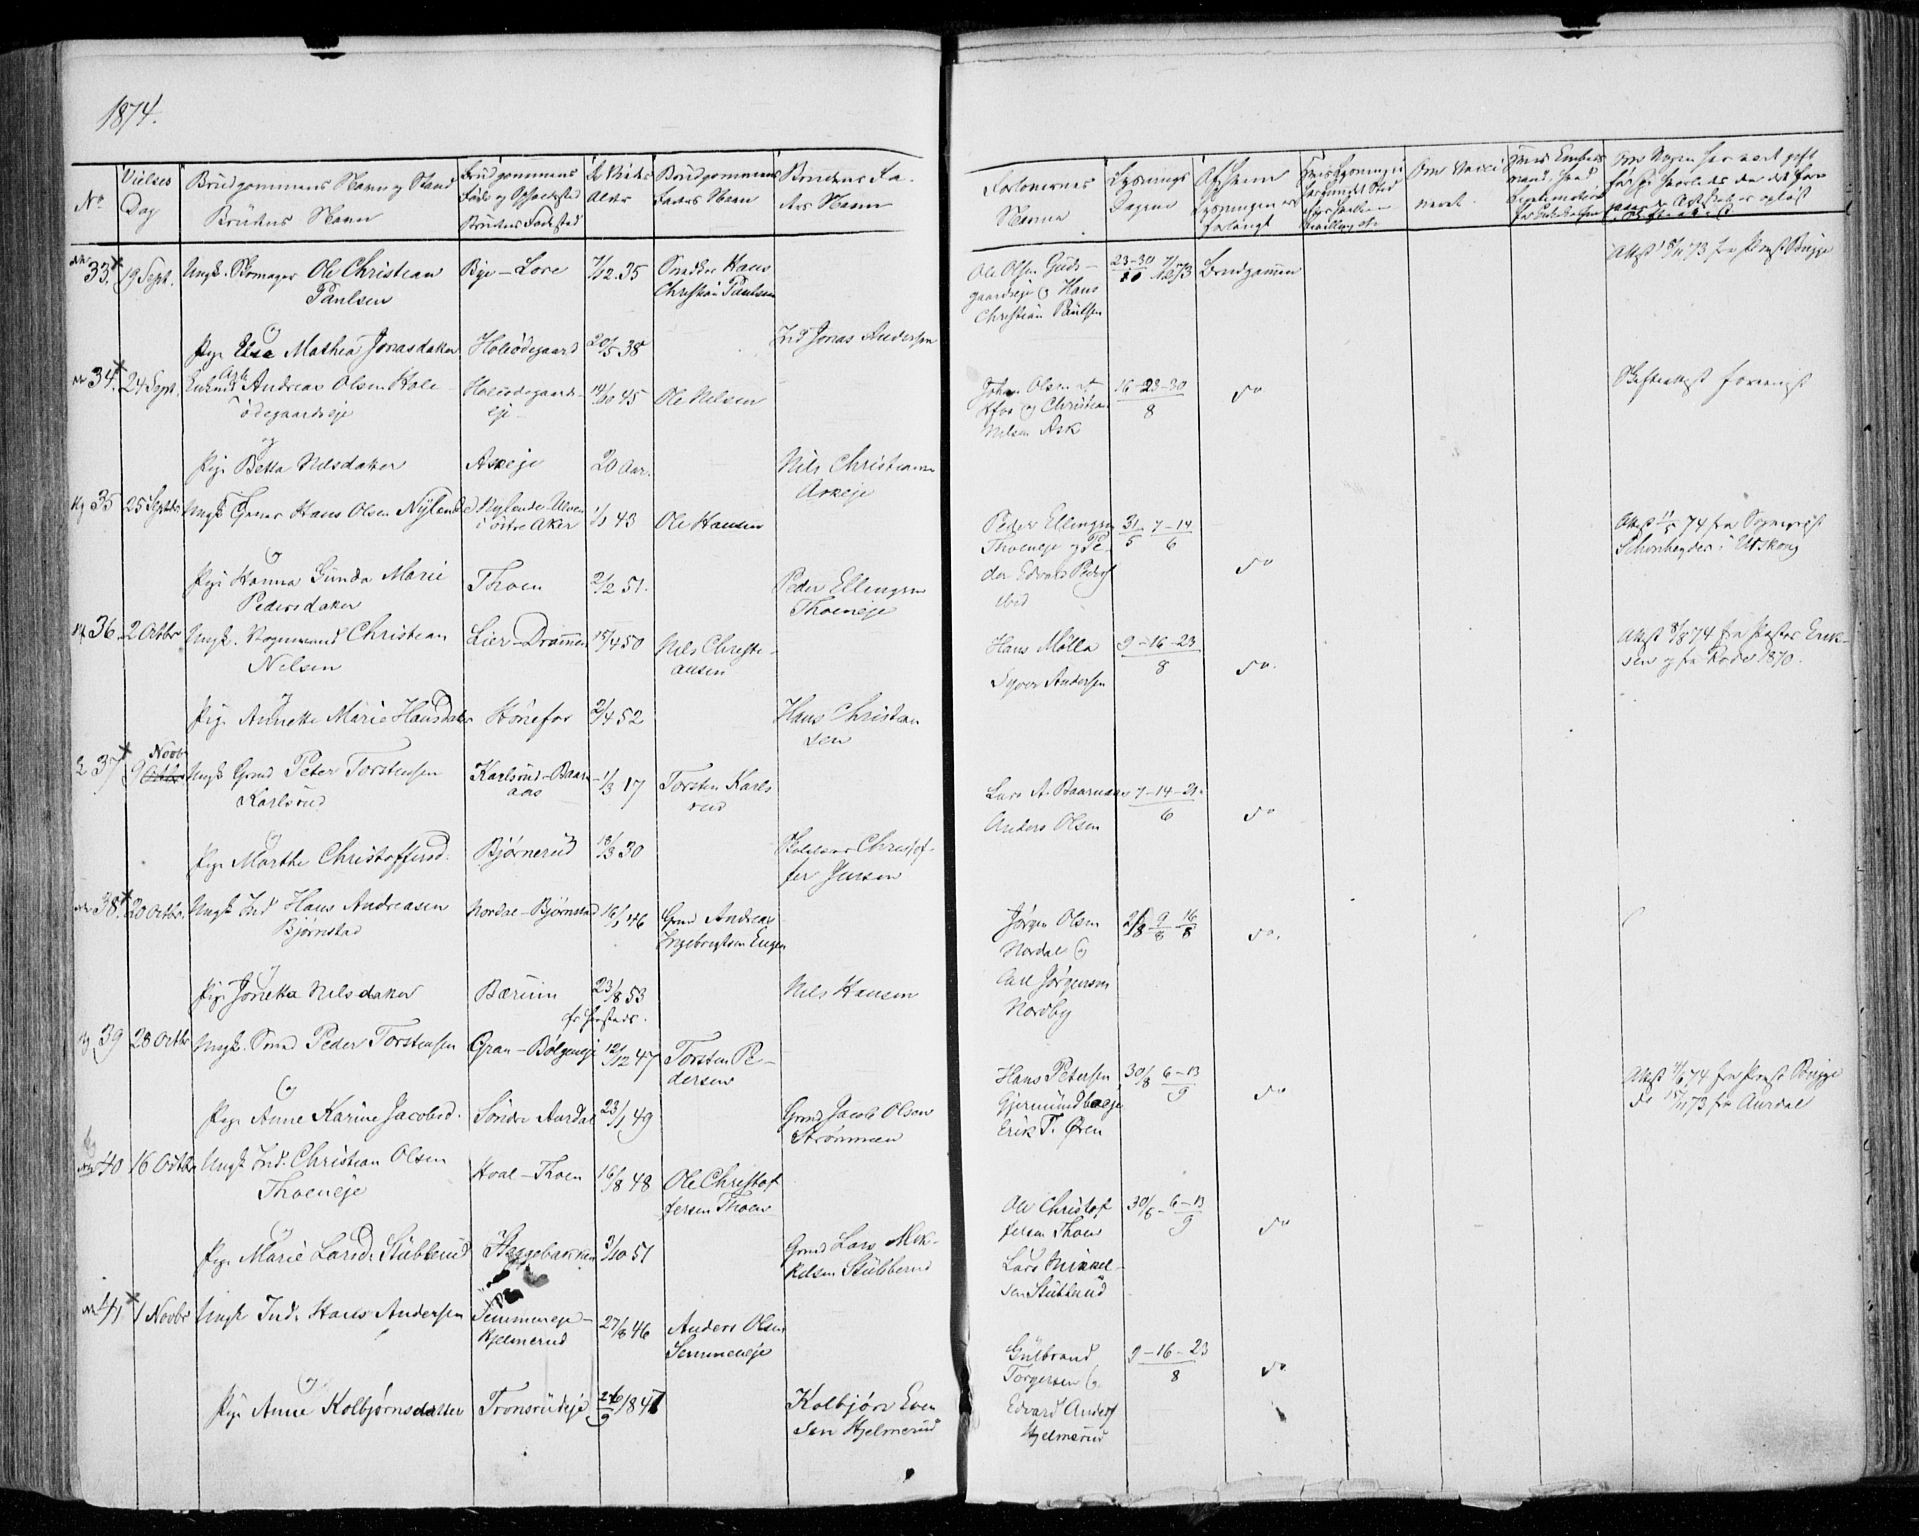 1874.
No
Vielses
Dag
Brudgommens Navn og Stand
Brudens Navn
Brudgommens
Brudens Fødested
Alder
Brudgommens
Faders Navn
Brudens Fa-
ders Navn
Forlovernes
Navne
Lysnings
Dagene
Lysningen er
forlangt
33. 19 Sept. Ungk. Skomager Ole Christian
Paulsen
Bye – Lore 7/12 35
Snedker Hans
Christian Paulsen
og
Pige Else Mathea Jonasdatter Holeødegaard 20/5 38
Ind Jonas Andersen
34. 24 Sept. Andreas Olsen Hole-
ødegaardseje
Holeødegaards-
eje
14/10 45 Ole Nilsen
og
Pige Betta Nilsdatter Askeje 20 Aar.
Nils Christiansen
Askeje
35 25 Septbr Ungk. Tjener Hans Olsen Nylende Nylende-Ulven
i Østre Aker
1/1 43 Ole Hansen
og
Pige Hanna Gunda Marie
Pedersdatter
Thoen 2/2 51.
Peder Ellingsen
Thoeneje
36 2 Octbr Ungk. Vognmand Christian
Nilsen
Lier – Drammen 15/4 50
Nils Christi-
ansen
og
Pige Annette Marie Hansdatter Hønefos 2/4 52
Hans Christian
sen
37 9 Novb Octbr Ungk. Grmd Peter Torstensen
Karlsrud
Karlsrud – Baarn
aas
1/3 17
Torsten Karls
rud
og
Pige Marthe Christoffersd. Bjørnerud 18/3 30
Christof-
fer Jensen
38. 20 Octbr. Ungk. Ind. Hans Andreasen
Bjørnstad
Nordre – Bjørnstad 16/1 46
Grmd Andreas
Ingebregtsen Engen
og
Pige Jonetta Nilsdatter Bærum 23/8 53
Nils Hansen
39 28 Octbr Ungk. Smed Peder Torstensen Gran – Bølgeneje 12/12 47
Torsten Pe-
dersen
og
Pige Anne Karine Jacobsd. Søndre Aurdal 23/1 49
Grmd Jacob Olsen
Strømmen
40 16 Octbr Ungk. Ind. Christian Olsen
Thoeneje
Hval – Thoen 16/8 48
Ole Christof
fersen Thoen
og
Pige Marie Larsd. Stubberud Haggebakken 3/10 51
Grmd Lars Mik-
kelsen Stubberud
41 1 Novbr Ungk. Ind. Hans Andersen Semmeneje –
Hjelmerud
27/8 46
Anders Olsen
Semmeneje
og
Pige Anne Kolbjørnsdatter Tronsrudeje 26/9 1847
Kolbjørn Even
sen Hjelmerud
Ole Olsen Guds-
gaardseje og Hans
Christian Paulsen
23-30/11 7/12 1873 Brudgommen
Attest 18/11 73 fra Provst Bugge
Johan Olsen
og Christian
Nilsen Ask
16-23-30/8 Do
Skifteattest foreviist
Peder Ellingsen
Thoeneje og Pe-
der Edvard Peders
ibid
31/5 7-14/6 Do
Attest 11/5 74 fra Sognepræst
Schonheyder i Urskoug
Hans Mølla
Syver Andersen
9-16-23/8 Do.
Attest 8/8 74 fra Pastor Erik-
sen og fra Rode 1870.
Lars A. Baarnaas
Anders Olsen
7-14-21/6 Do
Jørgen Olsen
Nordal og
Carl Jørgensen
Nordby
2/8 9/8 16/8 Do.
Hans Petersen
Gjermundboeje
Erik T. Øren
30/8 6-13/9 Do
Attest 14/6 74 fra Provst Bugge
Do 15/11 73 fra Aurdal
Ole Christof
fersen Thoen
Lars Mikkel-
sen Stubberud
30/8 - 6-13/9 Do
Gulbrand
Torgersen og
Edvard Anders
Hjelmerud
9-16-23/8 Do